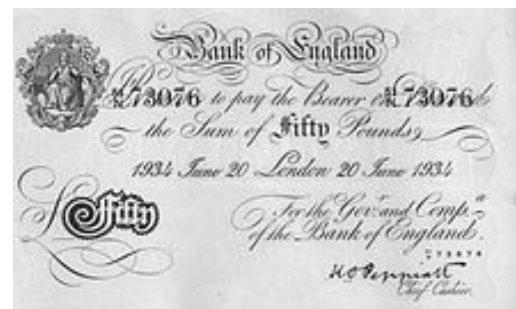 Bank of England
73076 to pay the Bearer on 73076
the Sum of Fifty Pounds
1934 June 20 London 20 June 1934
Fifty
For the Gov.r and Comp.a
of the Bank of England.
K O Peppiatt
Chief Cashier.